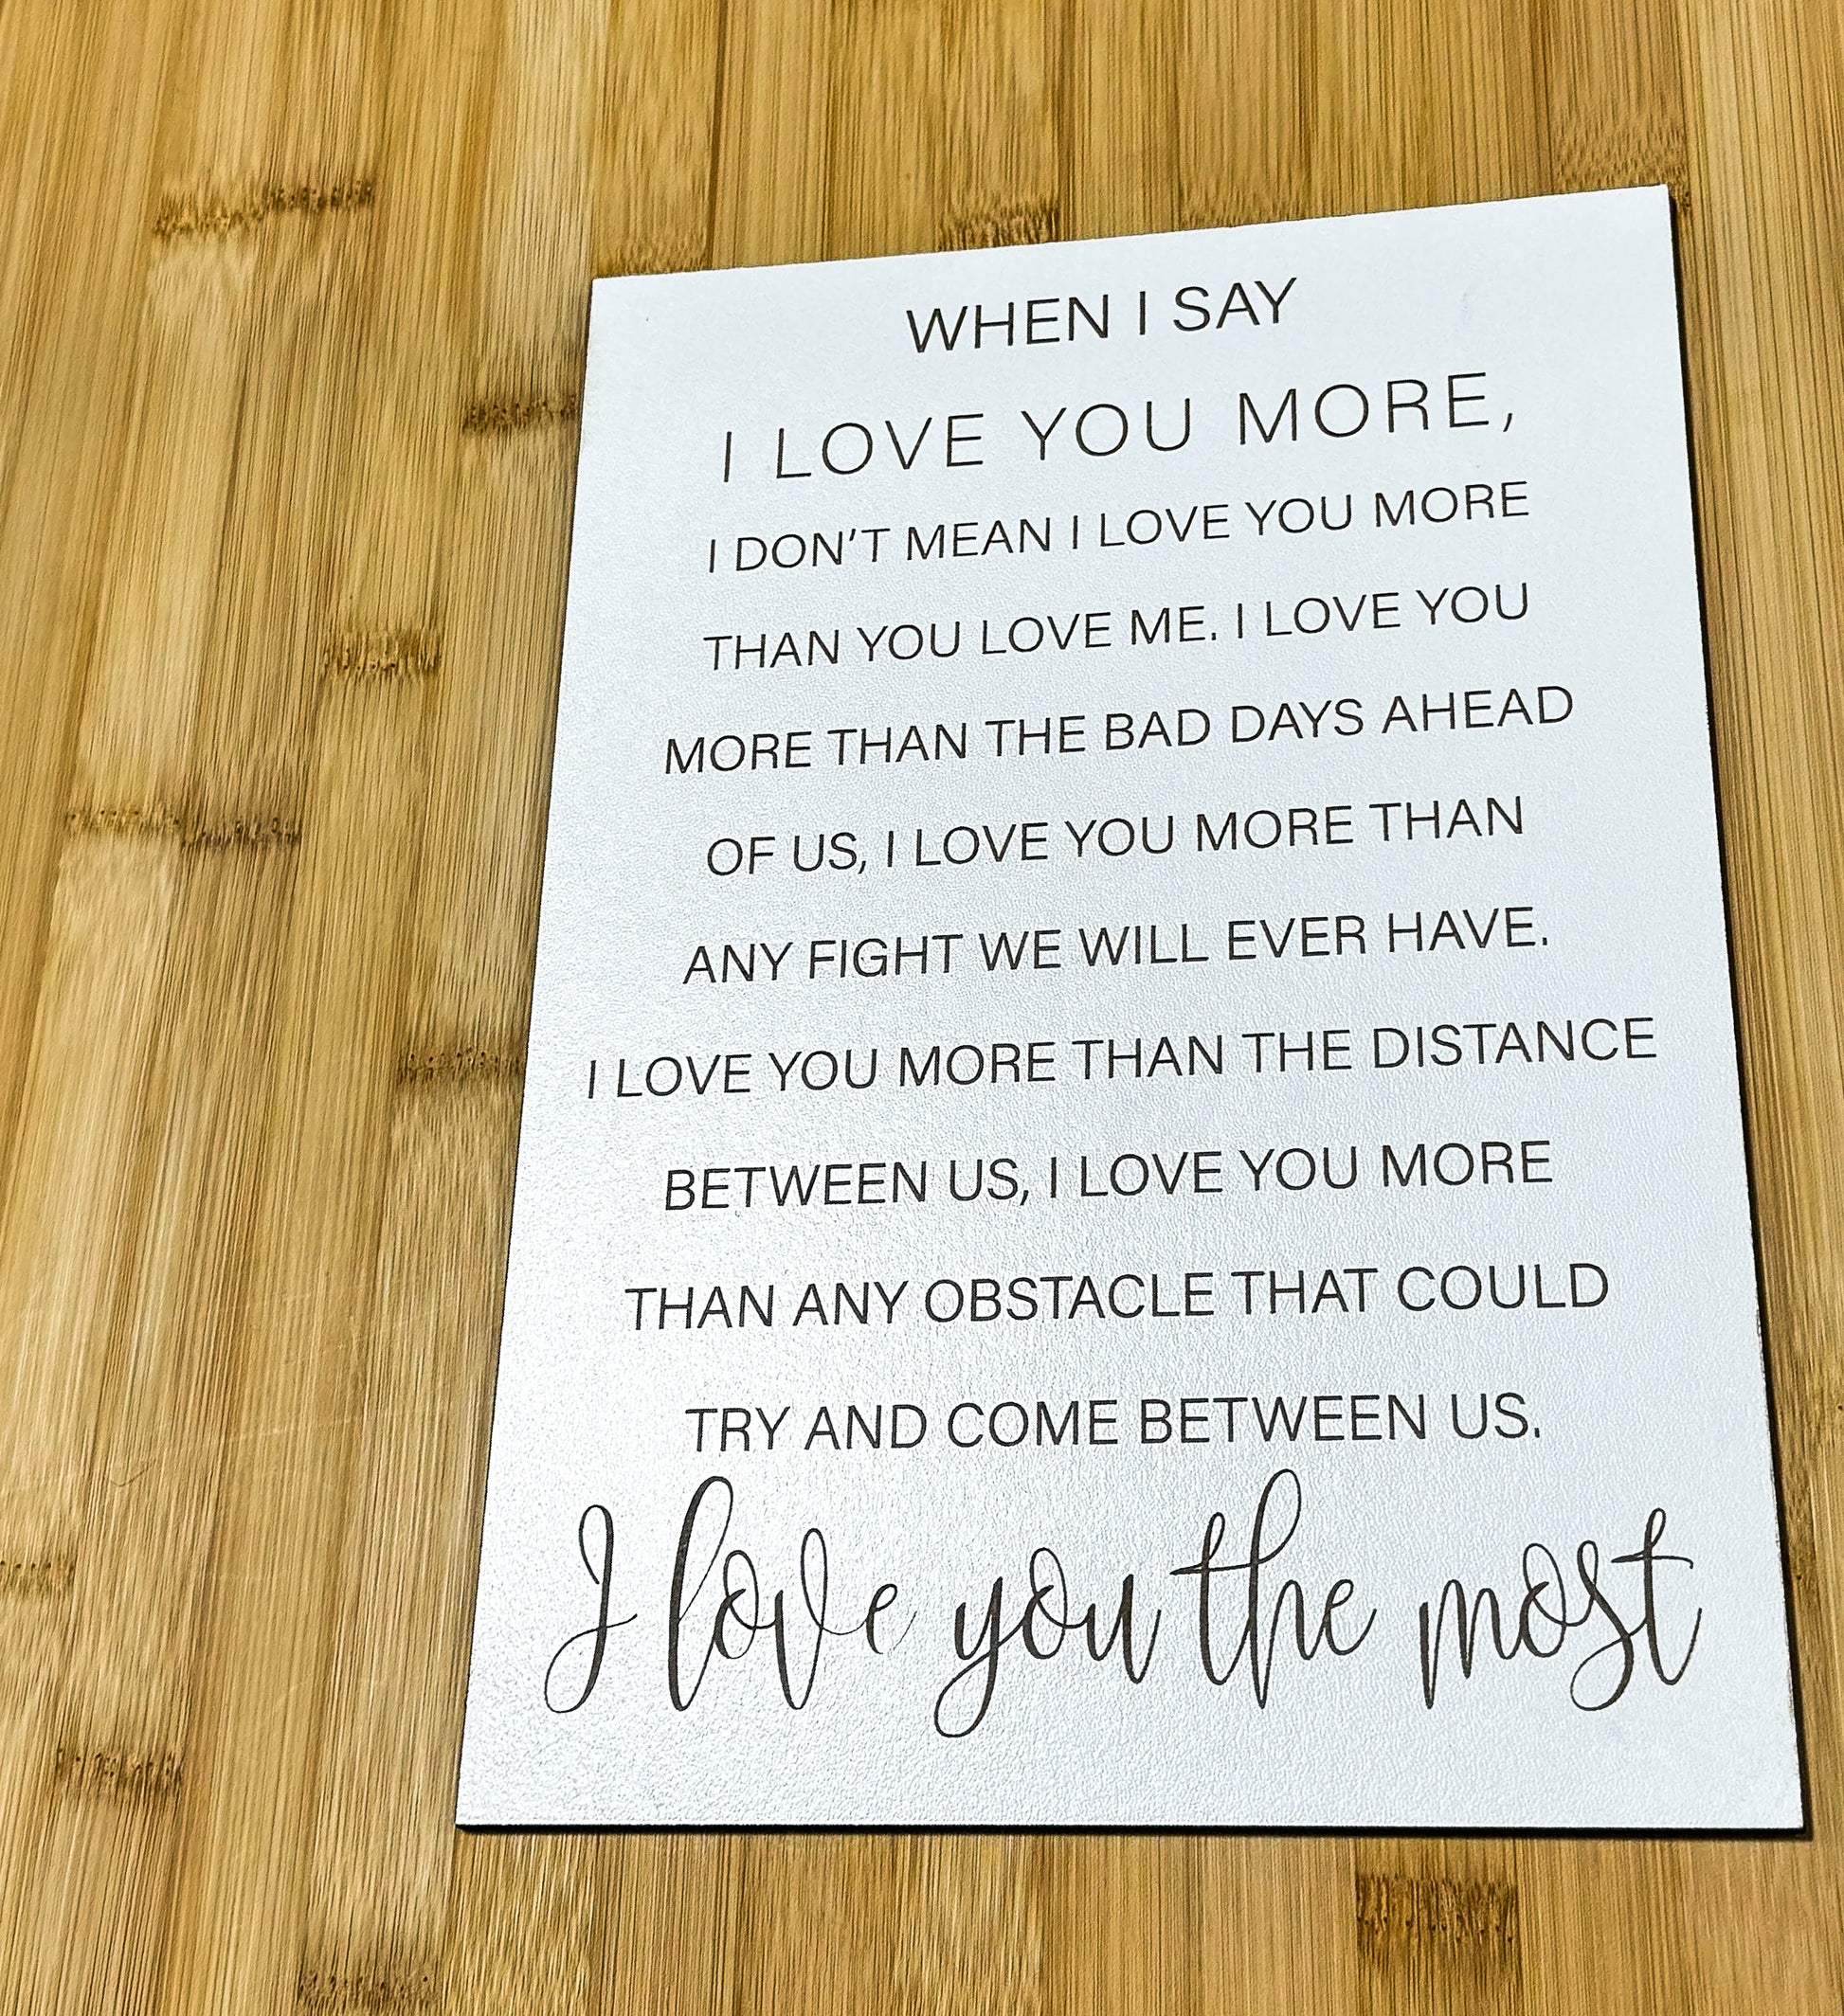 WHEN I SAY
I LOVE YOU MORE,
I DON'T MEAN I LOVE YOU MORE
THAN YOU LOVE ME. I LOVE YOU
MORE THAN THE BAD DAYS AHEAD
OF US, I LOVE YOU MORE THAN
ANY FIGHT WE WILL EVER HAVE.
I LOVE YOU MORE THAN THE DISTANCE
BETWEEN US, I LOVE YOU MORE
THAN ANY OBSTACLE THAT COULD
TRY AND COME BETWEEN US.
I love you the most